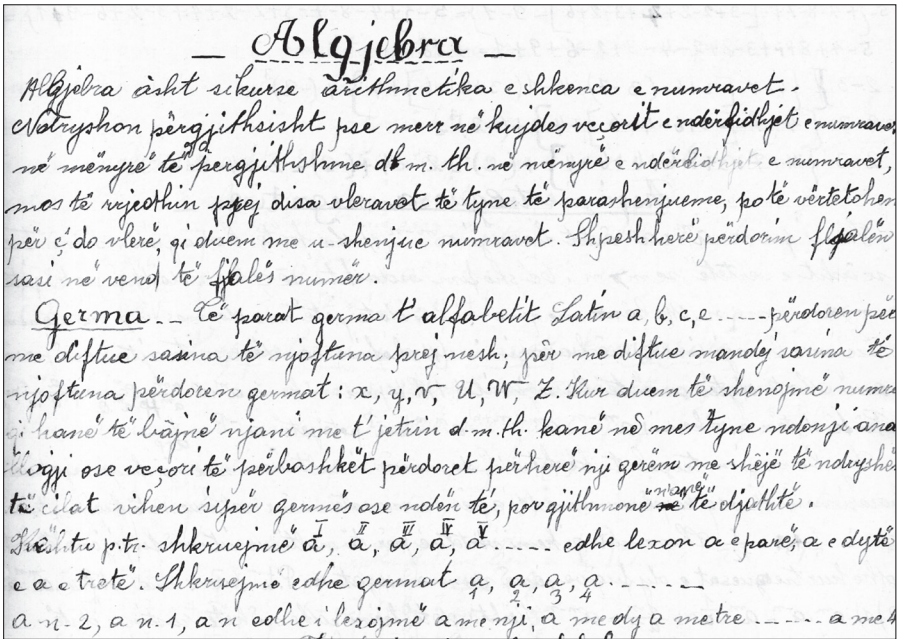 — Algjebra —
Algjebra âsht sikurse arithmetika e shkenca e numravet.
Ndryshon përgjithsisht pse merr në kujdes veçorit e ndërlidhjet e numravet
në mënyrë të pergjithshme d. m. th. në mënyrë e ndërlidhjet e numravet,
mos të rrjedhin prej disa vleravet të tyne të parashenjueme, po të vërtetohen
për ç'do vlerë, qi duem me u-shenjue numravet. Shpesh herë përdorim fjalën
sasi në vend të fjalës numër.
Germa.-- Të parat germa t' alfabetit Latin a, b, c, e ..... përdoren për
me diftue sasina të njoftuna prej nesh; për me diftue mandej sasina të
njoftuna përdoren germat : x, y, v, U, W, Z. Kur duem të shenojmë numra
qi kanë të bâjnë njani me t' jetrin d.m.th. kanë në mes tyne ndonji ana
llogji ose veçori të përbashkët përdoret përherë nji gerëm me shêjë të ndryshë
të cilat vihen sipër germës ose ndën té, por gjithmonë nanë të djathtë.
Kështu p.tr. shkruejmë a I, a II, a III, a IV, a V ..... edhe lexon a e parë, a e dytë
e a e tretë. Shkruejmë edhe germat a 1, a 2, a 3, a 4 . - - - -
a n-2, a n-1, a n edhe i lexojmë a me nji, a me dy a me tre ...... a me 4